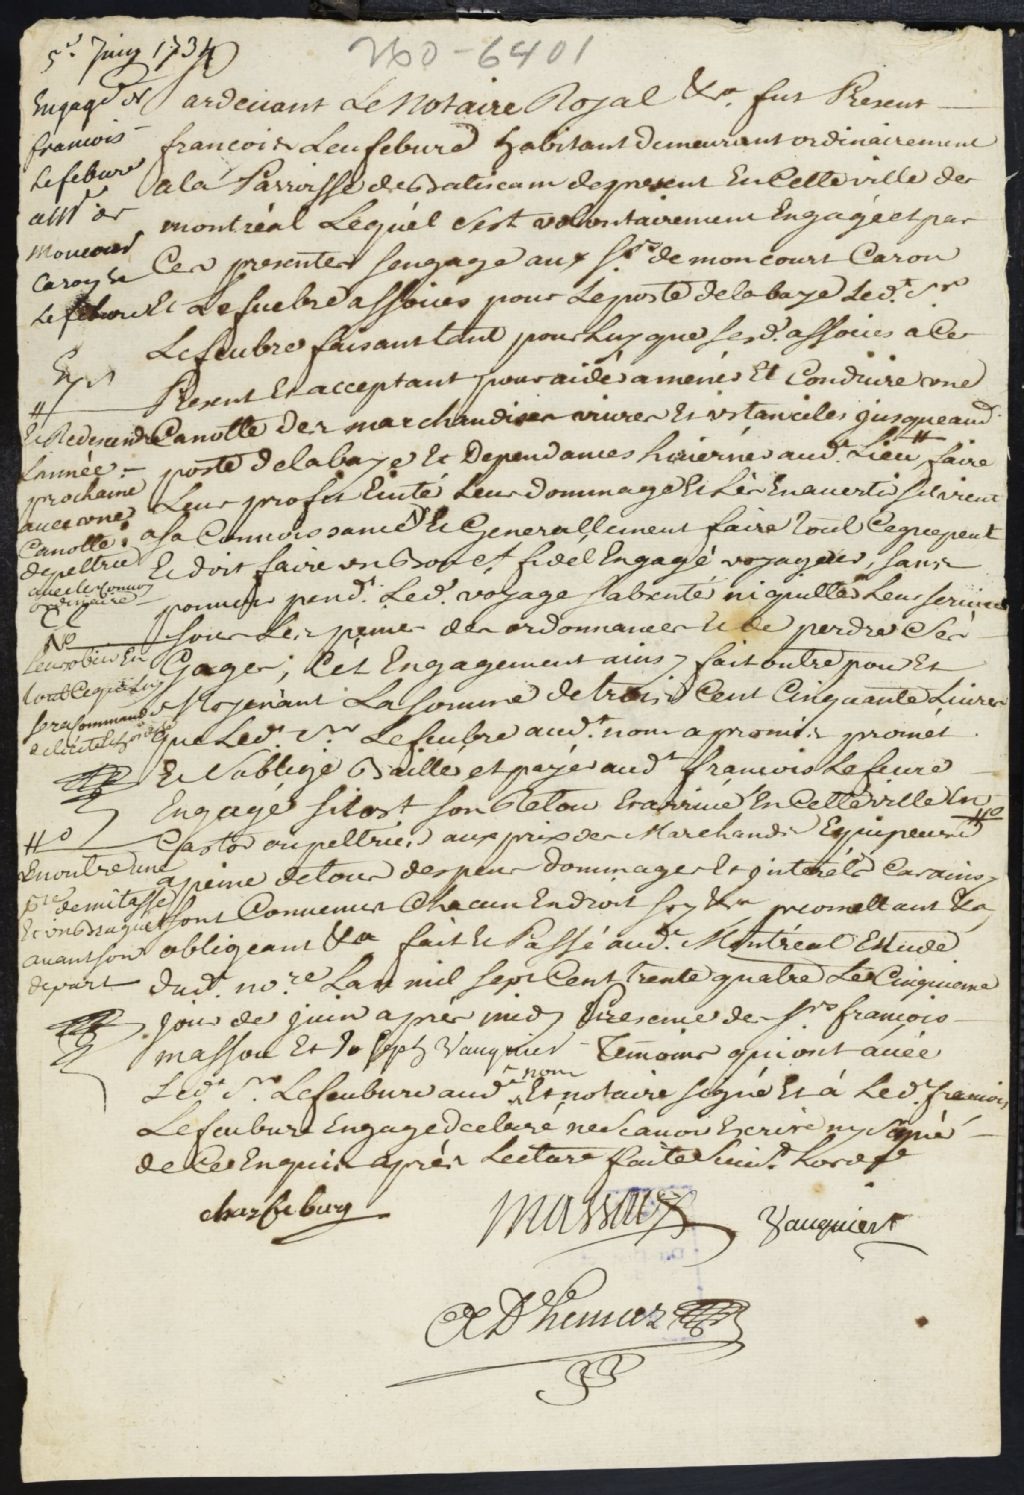 5e. Juin 1734
260-6401
Engagt de
francois
Lefebure
aux Srs de
Moncour
Caron Et
Lefebure
Pardeuant Le Notaire Royal &a. fut Present
francois Leufebure habitant demeurant ordinairement
a la Parroisse de Batiscam de present En Cette ville de
montréal Lequél s'est volontairement Engagé et par
Ces presentes sengage aux Srs de moncourt Caron
Et Lefuebre associes pour Le poste de la baye Led. Sr
Lefeubre faisant tant pour Luy que sesd. associes a Ce
Present Et acceptant pour aidér a menér Et Conduire une
Canotte des marchandises viures Et vstanciles jusque aud.
poste de la baye Et Dependances hiuerné aud. Lieu # faire
Leur profit Euité Leur dommage Et Les En auerti sil vient
a sa Connoissance N Et Generallement faire tout Ce que peut
Et doit faire un Bon et fidel Engagé voyageur, sans
pouuoir pendt. Led. voyage sabsenté ni quitter Leur seruice
sous Les peines des ordonnances Et de perdre Ses
Gages; Cet Engagement ainsy fait outre pour Et
Moyenant La somme de trois Cent Cinquante Liures
que Led. Sr Lefeubre aud. nom a promis promét
Et Soblige Bailler et payé audt francois Lefeure
Engagé sitost son Retour Et arriué En Cette ville En #o
Castor ou pelterie aux prix des Marchands Equipeurs
a peine de tous despens dommages Et jnterets Car ainsy
sont Conuenus Chacun En droit soy &a promettant &a
obligeant &a fait Et Passé aud. Montréal Etude
dud. nore. L'an mil sept Cent trente quatre Le Cinquieme
jour de juin apres midy Presence de Srs francois
masson Et Joseph Vauquier Temoins qui ont auec
Led. Sr. Lefeubure aud. nom Et notaire signé Et á Led. francois
Lefeubure Engagé declaré ne Scauoir Escrire ny signé
de Ce Enquis aprés Lecture faite Suiut. Lordce
#
Et Redescendre
L'année
prochaine
auec une
Canotte
de peltrie
auec le Conuoy
ordinaire
N
Leur obeir En
tout Ce qui Luy
sera Commandé
#o
En outre une
pre de mitasse
Et un Braguet
auant son
depart
char lefebury
Masson
Vauquiert
Adhemar